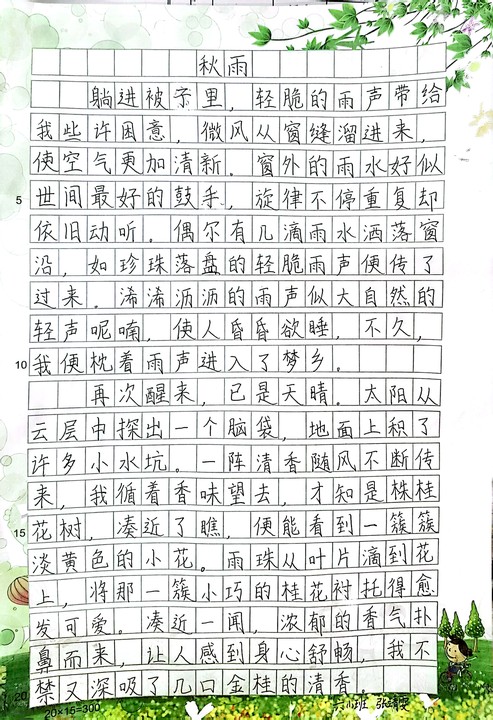 秋雨
躺进被子里，轻脆的雨声带给
我些许困意，微风从窗缝溜进来，
使空气更加清新。窗外的雨水好似
5 世间最好的鼓手，旋律不停重复却
依旧动听。偶尔有几滴雨水洒落窗
沿，如珍珠落盘的轻脆雨声便传了
过来。浠浠沥沥的雨声似大自然的
轻声呢喃，使人昏昏欲睡，不久，
10 我便枕着雨声进入了梦乡。
再次醒来，已是天晴。太阳从
云层中探出一个脑袋，地面上积了
许多小水坑。一阵清香随风不断传
来，我循着香味望去，才知是株桂
15 花树，凑近了瞧，便能看到一簇簇
淡黄色的小花。雨珠从叶片滴到花
上，将那一簇小巧的桂花衬托得愈
发可爱。凑近一闻，浓郁的香气扑
鼻而来，让人感到身心舒畅，我不
20 禁又深吸了几口金桂的清香
20×15=300